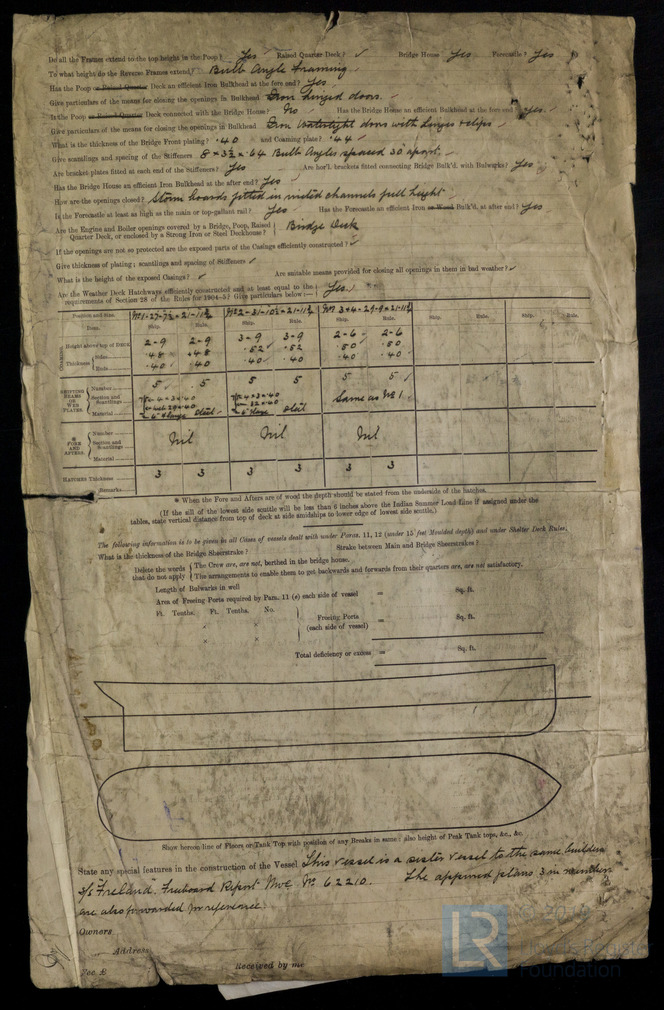 Do all the Frames extend to the top height in the Poop? Yes Raised Quarter Deck? ✓ Bridge House Yes Forecastle? Yes
To what height do the Reverse Frames extend? Bulb Angle Framing
Has the Poop or Raised Quarter Deck an efficient Iron Bulkhead at the fore end? Yes
Give particulars of the means for closing the openings in Bulkhead Iron hinged doors.
Is the Poop or Raised Quarter Deck connected with the Bridge House? No Has the Bridge House an efficient Bulkhead at the fore end? Yes.
Give particulars of the means for closing the openings in Bulkhead Iron watertight doors with hinges & clips
What is the thickness of the Bridge Front plating? .40 and Coaming plate? .44 ✓
Give scantlings and spacing of the Stiffeners 8 × 3½ × .64 Bulb Angles spaced 30 apart.
Are bracket plates fitted at each end of the Stiffeners? Yes Are hor'l. brackets fitted connecting Bridge Bulk'd. with Bulwarks? Yes
Has the Bridge House an efficient Iron Bulkhead at the after end? Yes
How are the openings closed? Storm boards fitted in riveted channels full height
Is the Forecastle at least as high as the main or top-gallant rail? Yes Has the Forecastle an efficient Iron or Wood Bulk'd. at after end? Yes
Are the Engine and Boiler openings covered by a Bridge, Poop, Raised Quarter Deck, or enclosed by a Strong Iron or Steel Deckhouse? Bridge Deck
If the openings are not so protected are the exposed parts of the Casings efficiently constructed? ✓
Give thickness of plating; scantlings and spacing of Stiffeners ✓
What is the height of the exposed Casings? ✓ Are suitable means provided for closing all openings in them in bad weather? ✓
Are the Weather Deck Hatchways efficiently constructed and at least equal to the
requirements of Section 28 of the Rules for 1904-5? Give particulars below:— Yes.
Position and Size. Nº1-27-7½ × 21-11¾ Nº2-31-10½ × 21-11¾ Nº3 & 4-29-9 × 21-11¾
Item. Ship. Rule. Ship. Rule. Ship. Rule. Ship. Rule. Ship. Rule.
Height above top of DECK 2-9 2-9 3-9 3-9 2-6 2-6
Thickness Sides .48 .48 .52 .52 .50 .50
Ends .40 .40 .40 .40 .40 .40
SHIFTING BEAMS OR WEB PLATES Number 5 5 5 5 5 5
Section and Scantlings Same as Nº1.
Material steel steel
* FORE AND AFTERS. Number
Section and Scantlings Nil Nil Nil
Material
HATCHES Thickness 3 3 3 3 3 3
Remarks
* When the Fore and Afters are of wood the depth should be stated from the underside of the hatches.
(If the sill of the lowest side scuttle will be less than 6 inches above the Indian Summer Load Line if assigned under the
tables, state vertical distance from top of deck at side amidships to lower edge of lowest side scuttle.)
The following information is to be given in all Cases of vessels dealt with under Paras. 11, 12 (under 15 feet Moulded depth) and under Shelter Deck Rules.
What is the thickness of the Bridge Sheerstrake? Strake between Main and Bridge Sheerstrakes?
Delete the words that do not apply { The Crew are, are not, berthed in the bridge house.
The arrangements to enable them to get backwards and forwards from their quarters are, are not satisfactory.
Length of Bulwarks in well = Sq. ft.
Area of Freeing Ports required by Para. 11 (e) each side of vessel
Ft. Tenths. Ft. Tenths. No.
× × Freeing Ports (each side of vessel) = Sq. ft.
× ×
Total deficiency or excess = Sq. ft.
Show hereon line of Floors or Tank Top with position of any Breaks in same; also height of Peak Tank tops, &c., &c.
State any special features in the construction of the Vessel This vessel is a sister vessel to the same builders
s/s "Freland". Freeboard Report Mbo. Nº 62210. The approved plans 3 in number
are also forwarded in reference.
Owners
Address
Fee £ Received by me
LR
Foundation